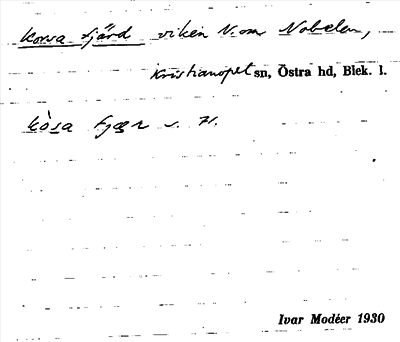 Korsa fjärd viken N. om Nabelen,
Kristianopel sn, Östra hd, Blek. l.
kòsa fjær s. 71.
Ivar Modéer 1930